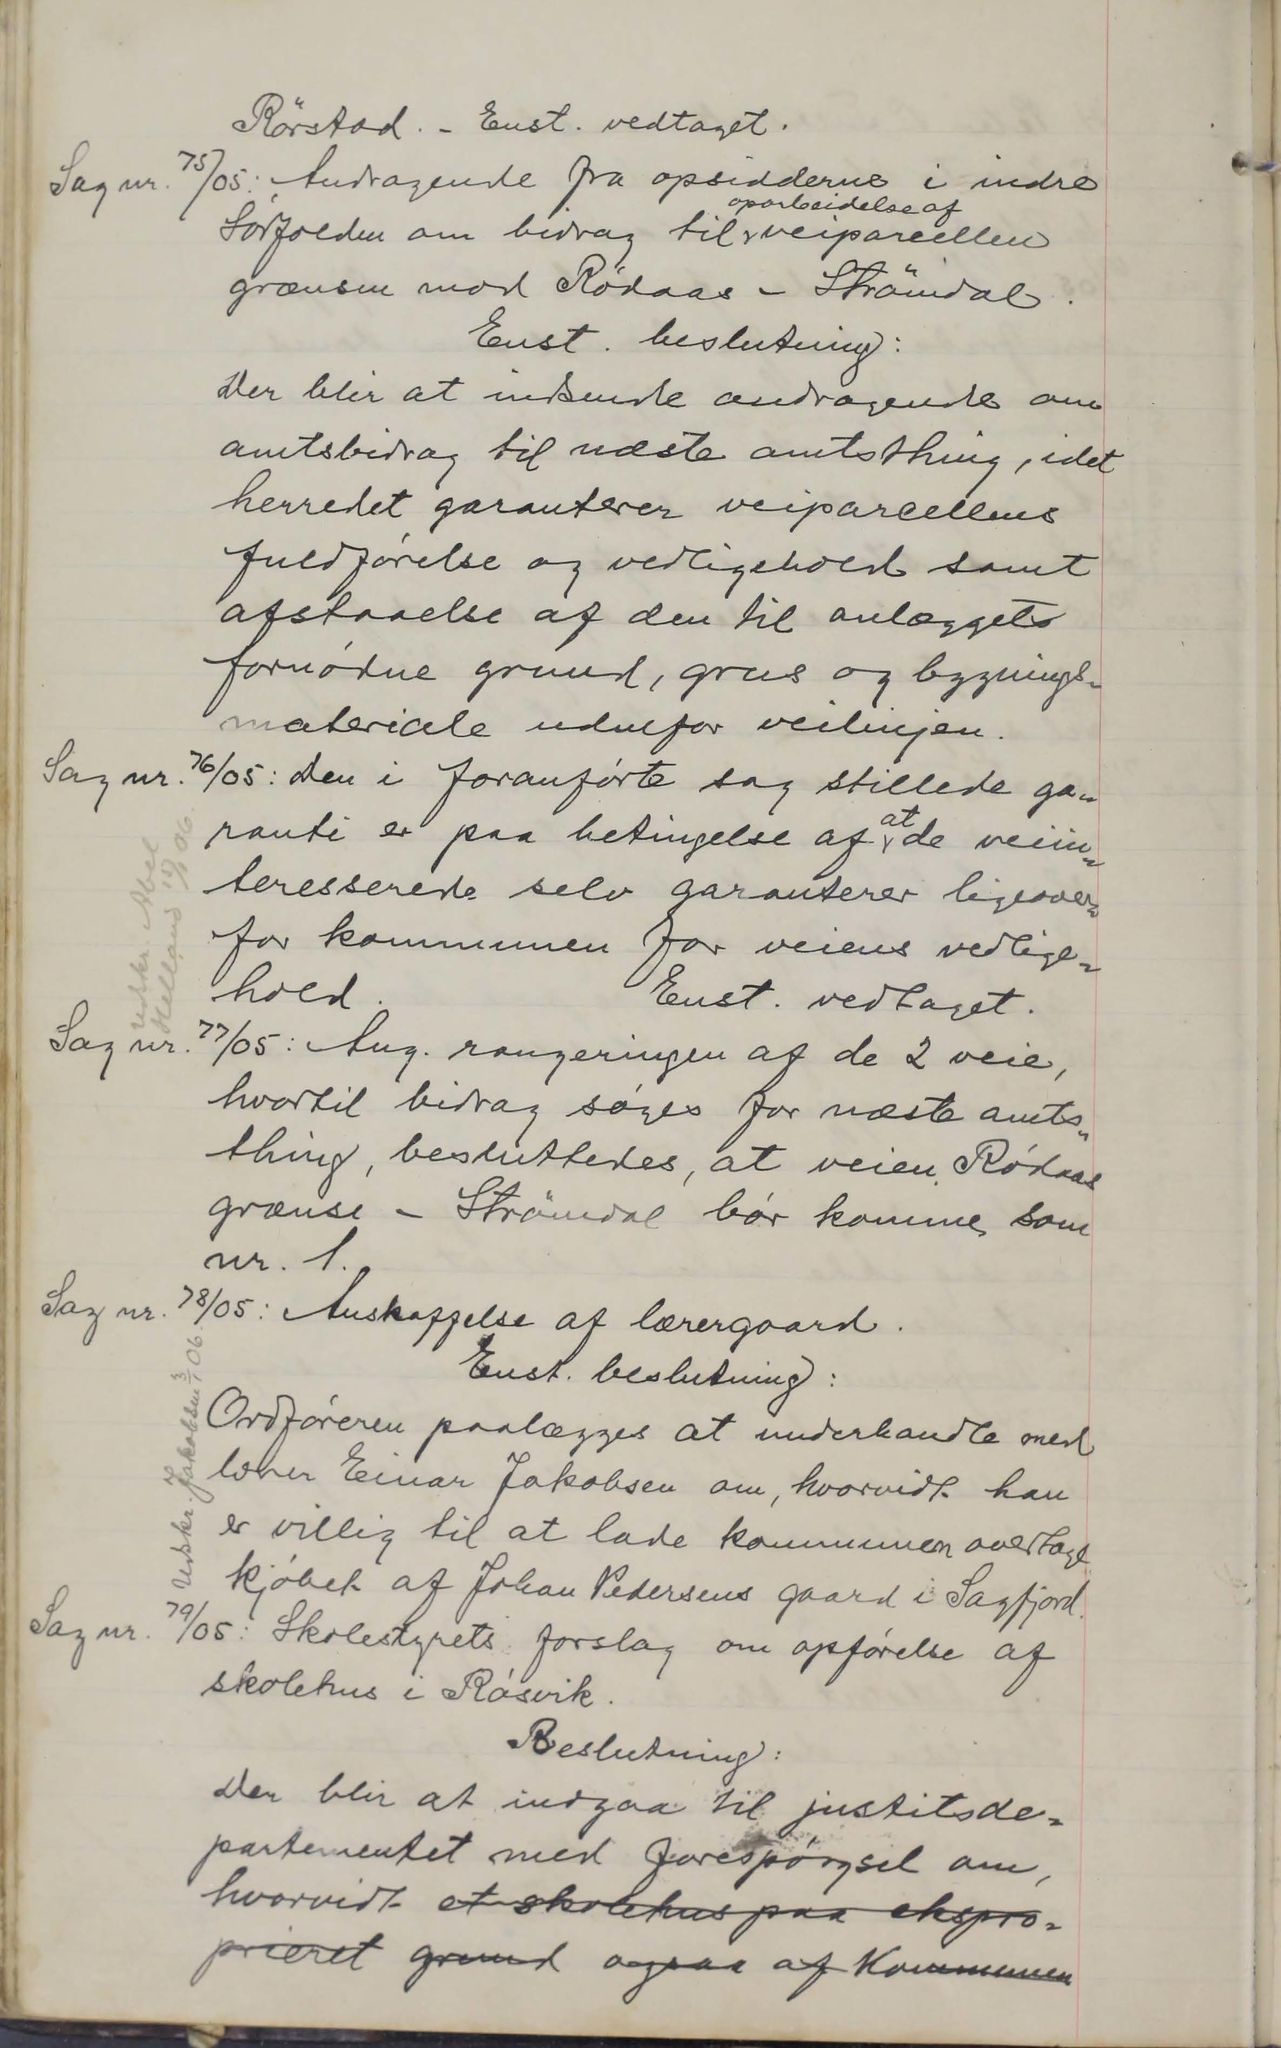 Rörstad. - Enst. vedtaget.
Sag nr. 75/05: Andragende fra opsidderne i indre
oparbeidelse af
Sörfolden om bidrag til veiparcellen
grænsen mod Rödaas - Strömdal.
Enst. beslutning:
Der blir at indsende andragende om
amtsbidrag til næste amtsthing, idet
herredet garanterer veiparcellens
fuldförelse og vedligehold samt
afstaaelse af den til anlægget
fornödne grund, grus og bygnings-
materiale udenfor veilinjen.
Sag nr. 76/05: Den i foranförte sag stillede ga-
at
ranti er paa betingelse af de veiin-
teresserede selv garanterer ligeover-
for kommunen for veiens vedlige-
hold. Enst. vedtaget.
Udskr. Abel
Helland 15/1 06.
Sag nr. 77/05: Ang. rangeringen af de 2 veie,
hvortil bidrag söges for næste amts-
thing, besluttedes, at veien Rödaas
grænse - Strömdal bör komme som
nr. 1.
Sag nr. 78/05: Anskaffelse af lærergaard.
Enst. beslutning:
Ordföreren paalægges at underhandle med
lærer Einar Jakobsen om, hvorvidt han
er villig til at lade kommunen overtage
kjöbet af Johan Pedersens gaard i Sagfjord.
Udskr. Jakobsen 3/1 06.
Sag nr. 79/05: Skolestyrets forslag om opförelse af
skolehus i Rösvik.
Beslutning:
Der blir at indgaa til justitsde-
partementet med forespörgsel om,
hvorvidt et skolehus paa ekspro-
prieret grund ogsaa af Kommunen